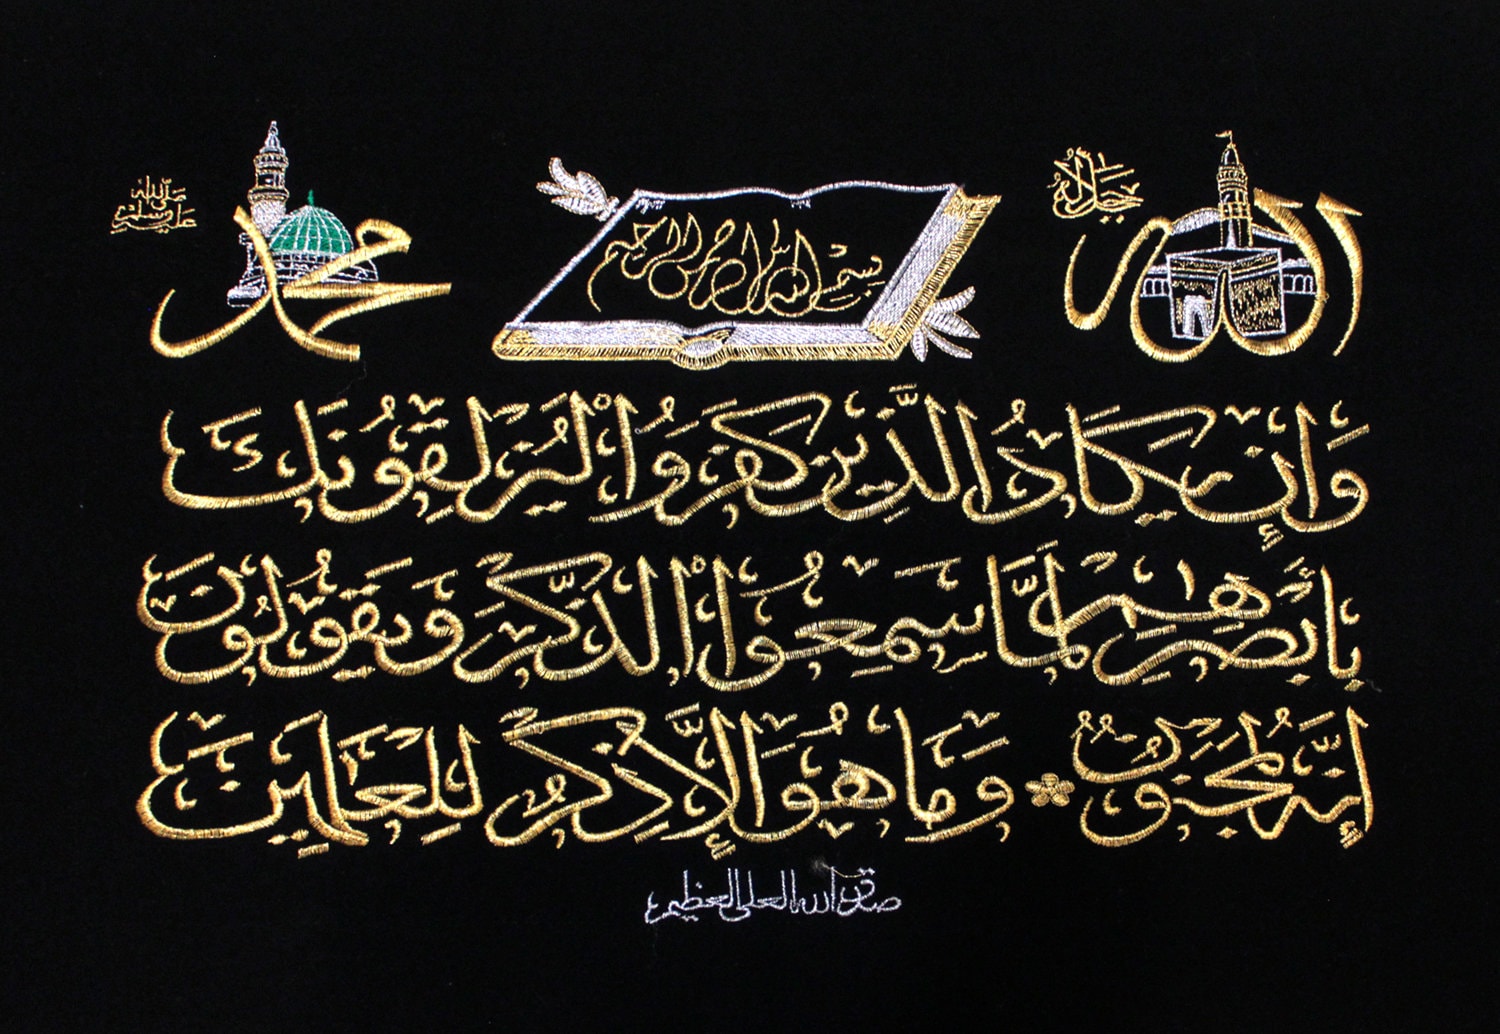 الله جل جلاله
بسم الله الرحمن الرحيم
محمد صلى الله عليه وسلم
وَإِن يَكَادُ الَّذِينَ كَفَرُواْ لَيُزْلِقُونَكَ
بِأَبْصَٰرِهِمْ لَمَّا سَمِعُواْ الذِّكْرَ وَيَقُولُونَ
إِنَّهُ لَمَجْنُونٌ وَمَا هُوَ إِلَّا ذِكْرٌ لِلْعَٰلَمِينَ
صدق الله العلي العظيم